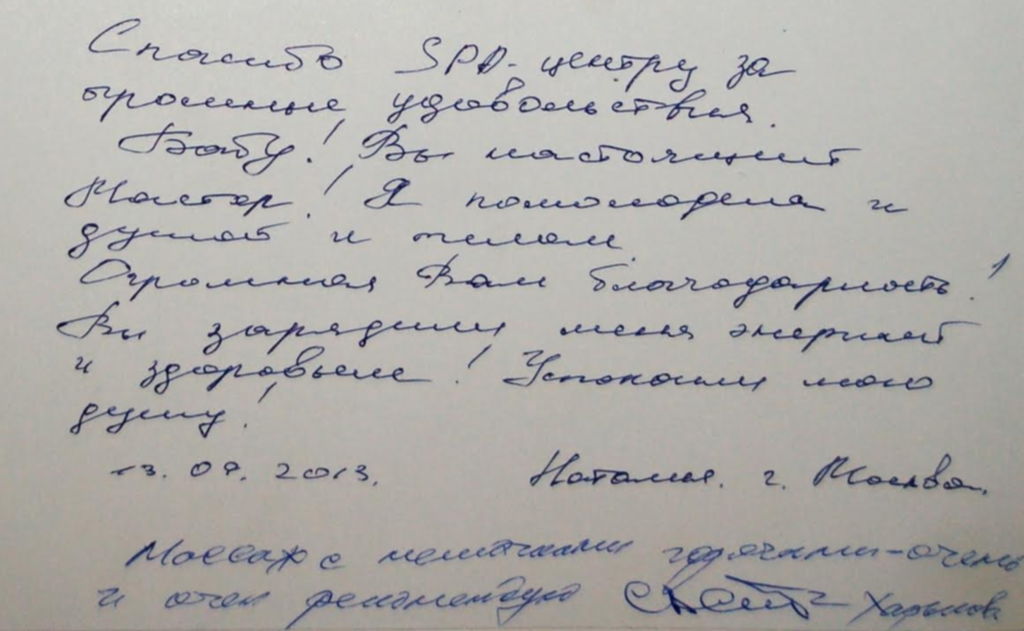 Спасибо SPA-центру за
огромные удовольствия.
Бабу! Вы настоящий
Мастер! Я помолодела и
душой и телом.
Огромная Вам благодарность!
Вы зарядили меня энергией
и здоровьем! Успокоили мою
душу!
13.09.2013. Наталия. г. Москва.
Массаж с мешочками горячими - очень
и очень рекомендую Харьков